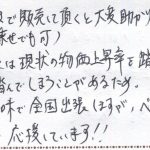 で販売して頂くと大変助か
乗せでも可)
は現状の物価上昇率を踏
踏んでしまうことがあるため。
味で全国出張しますが、ペ
応援しています!!